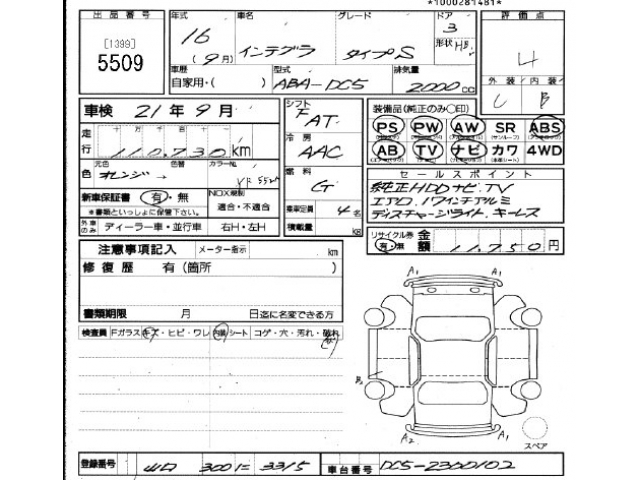 *1000281481*
出品番号 年式 車名 グレード ドア 評価点
[1399] 16 (9月) インテグラ タイプS 3 4
5509 形状 HB
車歴 型式 排気量 外装 内装
自家用・( ) ABA-DC5 2000 cc C B
車検 21年9月 シフト F AT 装備品(純正のみ○印)
PS PW AW SR ABS
走行 110,730 km 冷房 AAC AB TV ナビ カワ 4WD
元色 色替 カラーNo. 燃料 G セールスポイント
色 オレンジ YR552P 純正HDDナビ.TV
新車保証書 有・無 NOX規制 エアロ.17インチアルミ
*書類といっしょに保管下さい。 適合・不適合 乗車定員 4名 ディスチャージライト.キーレス
外車のみ ディーラー車・並行車 右H・左H 積載量 kg
リサイクル券 有・無 金額 11,750円
注意事項記入 メーター指示 km
修復歴 有(箇所 ) A1 A1
書類期限 月 日迄に名変できる方
検査員 Fガラスキズ・ヒビ・ワレ 内装シート コゲ・穴・汚れ・破れ
A2 A1
スペア
登録番号 山口 300 に 3315 車台番号 DC5-2300102